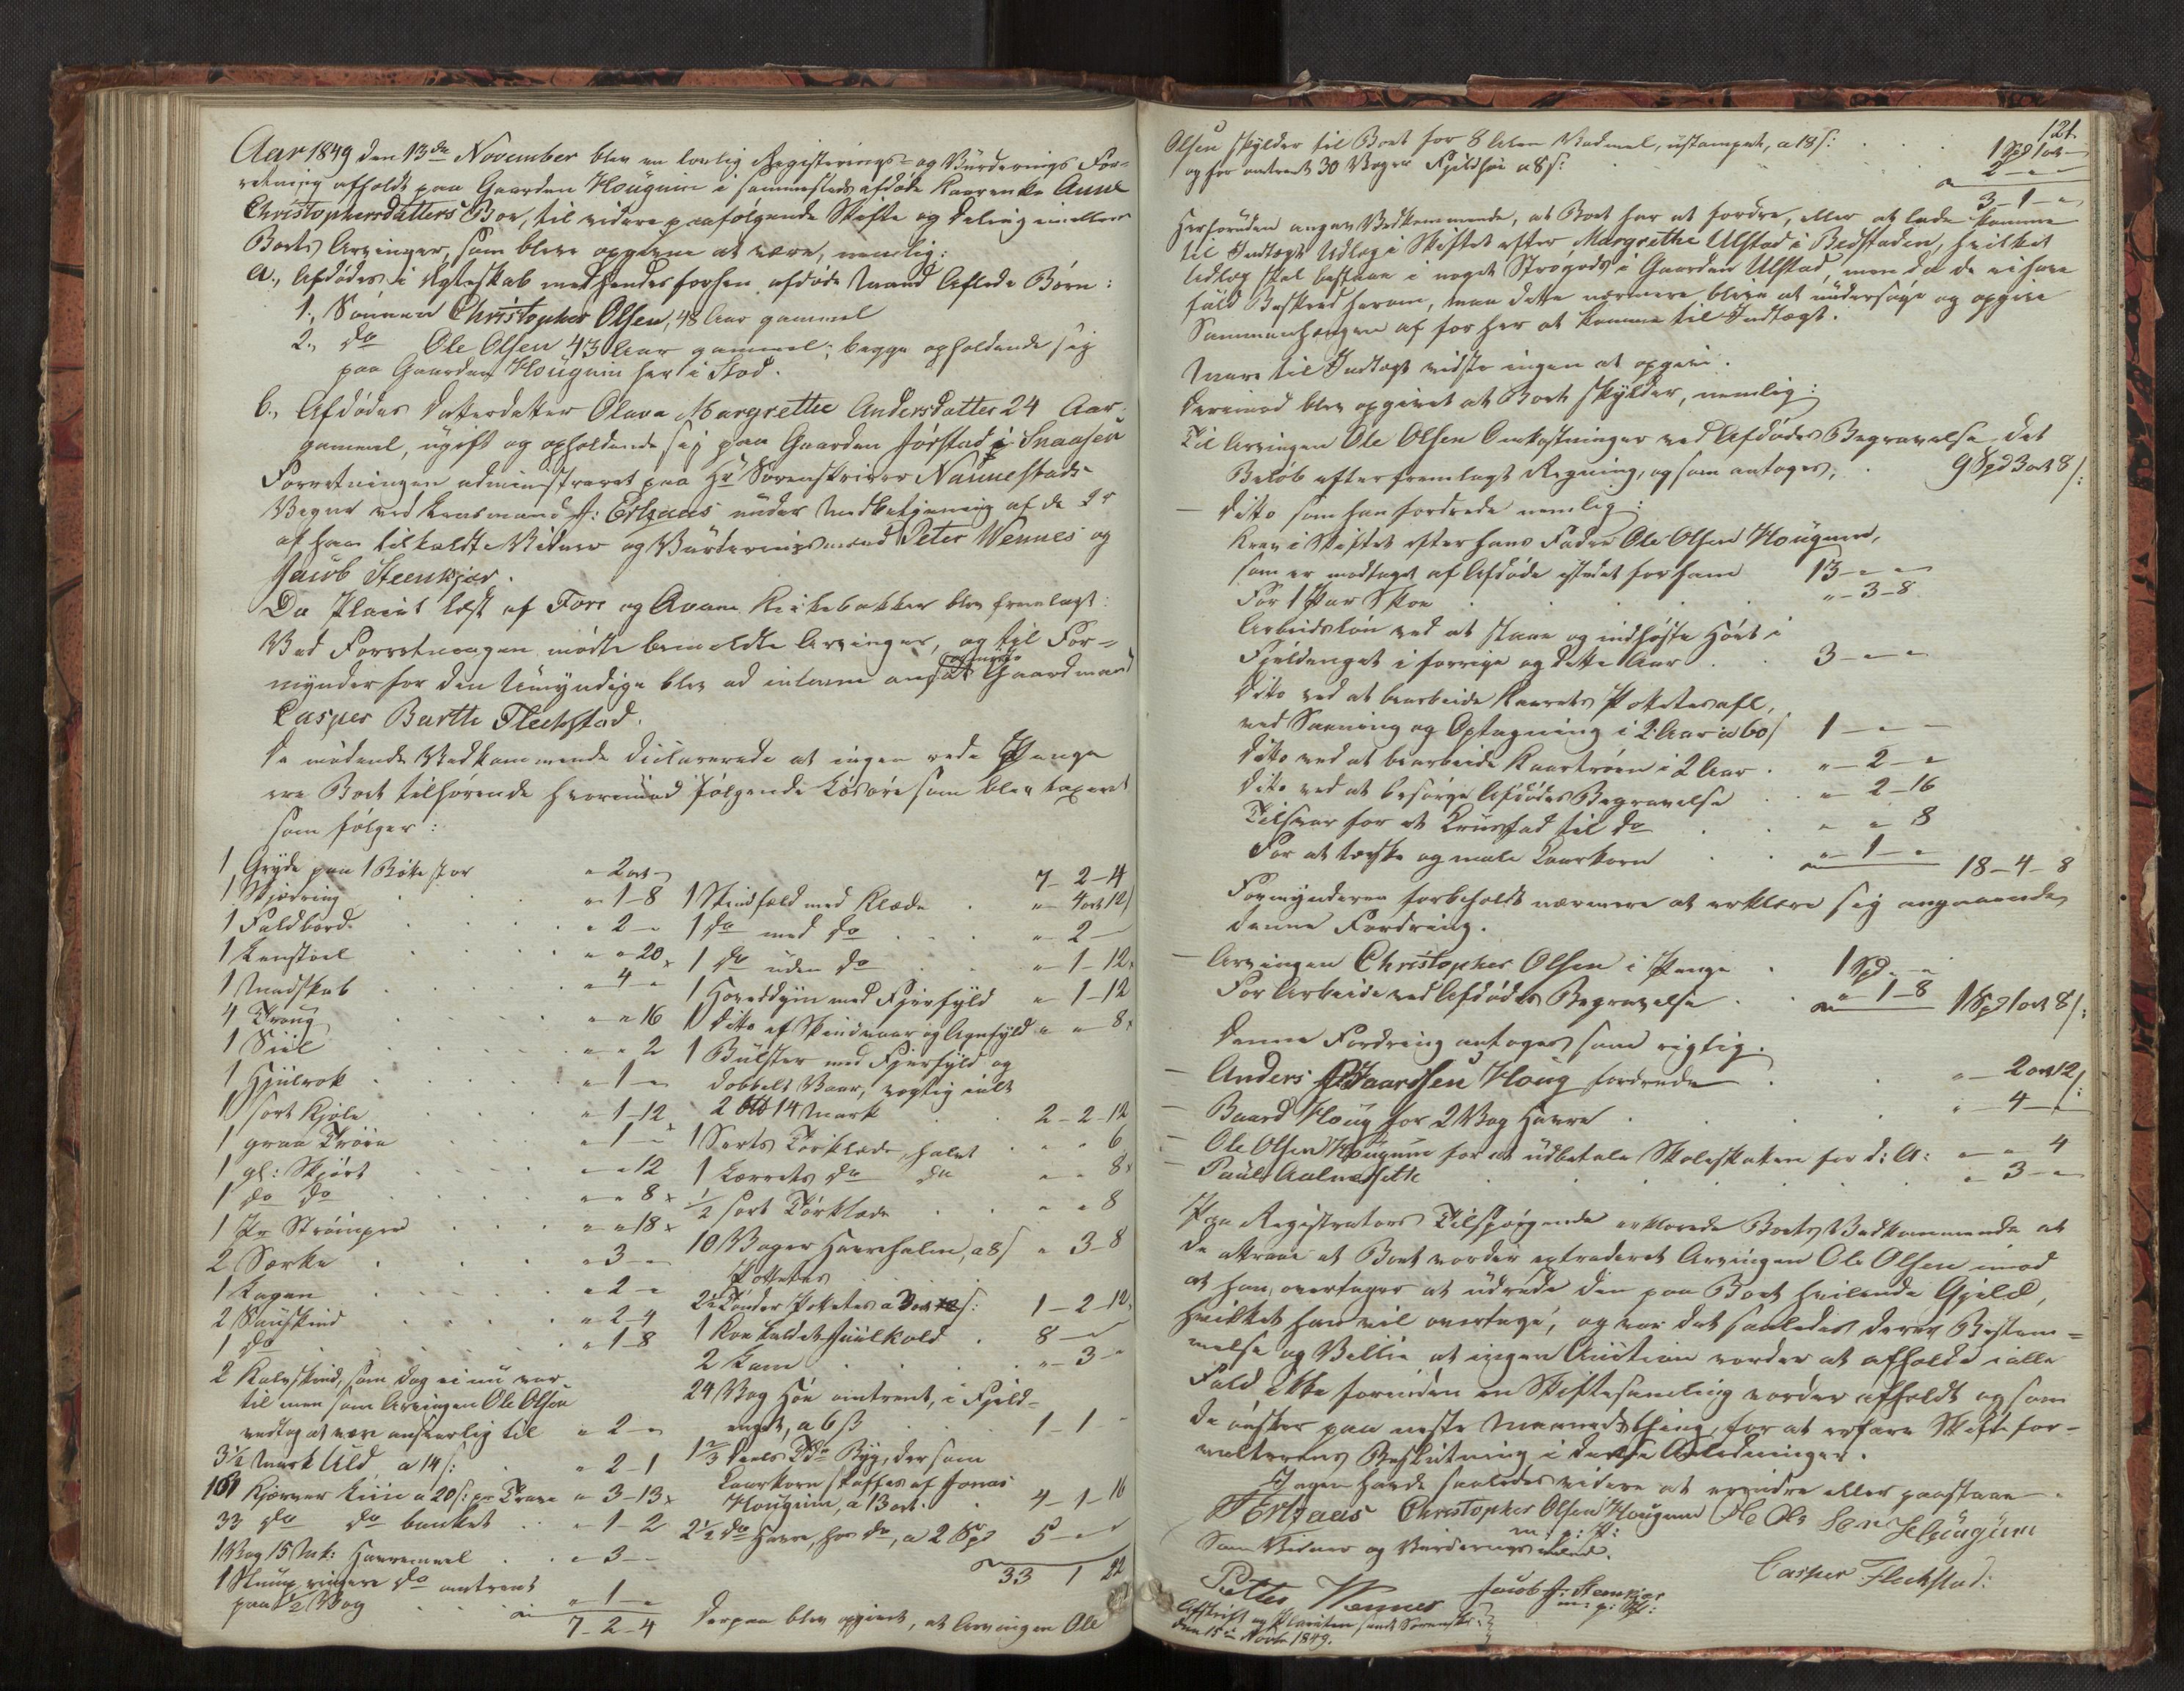 Aar 1849 den 13de November blev en lovlig Registerings- og Vurderings For-
retning afholdt paa Gaarden Hougum i sammesteds afdøde Kaarenke Anne
Christophersdatters Boe, til videre paafølgende Skifte og Deling imellem
Boets Arvinger, som bleve opgivne at være, nemlig:
a., Afdødes i Ægteskab med hendes forhen afdøde Mand Aflede Børn:
1., Sønnen Christopher Olsen, 48 Aar gammel
2., do Ole Olsen 43 Aar gammel; begge opholdende sig
paa Gaarden Hougum her i Stod.
b., Afdødes Datterdatter Olava Margrethe Andersdatter 24 Aar
gammel, ugift og opholdende sig paa Gaarden Jørstad i Snaasen
Forretningen administreret paa Hr Sorenskriver Nannestads
Vegne ved Lensmand J: Ertzaas under Medbetjening af de 2de
af ham tilkaldte Vidner og Vurderingsmænd Peter Wennes og
Jacob Steenkjær.
Da Placat læst af For: og Avane Kirkebakker blev fremlagt:
Ved Forretningen mødte bemeldte Arvinger, og til For-
mynder for den Umyndige blev ad interim ansat og mødte Gaardmand
Casper Barth Fleckstad.
De mødende Vedkommende declarerede at ingen rede Penge
ere Boet tilhørende hvorimod følgende Løsøre som blev taxeret
som følger:
1 Gryde paa 1 Bøtte stor " 2 ort "
1 Skjædring " 1-8
1 Faldbord " 2 -
1 Lænstoel " " 20
1 Madskab " 4 -
4 Troug " " 16
1 Siil " " 2
1 Hjulrok " 1 -
1 sort Kjole " 1-12
1 graa Trøie " 1 -
1 gl: Skjørt " " 12
1 do do " " 8
1 Pr Strømper " " 18
2 Særke " 3 -
1 Kagen " 2 -
2 Sauskind " 2-4
1 do " 1-8
2 Kalvskind, som dog ei nu var
til men som Arvingen Ole Olsen
vedtog at være ansvarlig til " 2 -
3½ Mark Uld a 14 s: " 2-1
161 Kjærver Liin a 20 s: pr Trave " 3-13
33 do do banket " 1-2
1 Vog 15 Mk: Havremeel " 3 -
1 Slump ringere do omtrent
paa ½ Vog " 1 -
7-2-4
7-2-4
1 Skindfæld med Klæde " 4 ort 12 s
1 do med do " 2 -
1 do uden do " 1-12
1 Hoveddyne med Fjærfyld " 1-12
1 Ditto af Skindvaar og Agnfyld " " 8
1 Bulster med Fjærfyld og
dobbelt Vaar, vægtig ialt
2 Vog 14 Mark 2-2-12
1 Sorts Tørklæde, halvt " " 6
1 Lærrets do do " " 8
½ sort Tørklæde " " 8
10 Voger Havrehalm, a 8 s " 3-8
Pottetes
2½ Tønder Potetes a 3 ort s: 1-2-12
1 Koe kaldet Juulkold 8 - -
2 Lam " 3 -
24 Vog Høe omtrent, i Fjeld-
enget, a 6 s 1-1 -
1⅔ Deels Tde Byg, der som
Kaarkorn skaffes af Jonas
Hougum, a 13 ort: 4-1-16
2½ do Havre, hos do, a 2 Spd 5 - -
33 1 22
Derpaa blev opgivet, at Arvingen Ole
121.
Olsen skylder til Boet for 8 Alen Vadmel, ustampet, a 18 s: 1 Spd 1 ort -
og for omtrent 30 Voger Fjeldhøi a 8 s: 2 - -
3-1 -
Herforuden angav Vedkommende, at Boet har at fordre, eller at lade komme
til Indtægt Udlæg i Skiftet efter Margrethe Ulstad i Bedstaden, hvilket
Udlæg skal bestaae i noget Strøgods i Gaarden Ulstad, men da de ei have
fuld Beskeed herom, maa dette nærmere blive at undersøge og opgive
Sammenhængen af for her at komme til Indtægt.
Mere til Indtægt vidste ingen at opgive.
Derimod blev opgivet at Boet skylder, nemlig:
Til Arvingen Ole Olsen Omkostninger ved Afdødes Begravelse det
Beløb efter fremlagt Regning, og som antoges, 9 Spd 3 ort 8 s:
— Ditto som han fordrede nemlig:
Krav i Skiftet efter hans Fader Ole Olsen Hougum,
som er modtaget af Afdøde istedet for ham 13 - -
For 1 Par Skoe " -3-8
Arbeidsløn ved at slaae og indhøste Høet i
Fjeldenget i forrige og dette Aar 3 - -
Ditto ved at bearbeide Kaarets Potetesafl,
ved Sætning og Optagning i 2 Aar a 60 s 1 - -
Ditto ved at bearbeide Kaartrøen i 2 Aar " 2 -
Ditto ved at besørge Afdødes Begravelse " 2-16
Tilsvar for et Kruusfad til do " " 8
For at tærske og male Kaarkorn " 1 -
18-4-8
Formynderen forbeholdt nærmere at erklære sig angaaende
denne Fordring.
— Arvingen Christopher Olsen i Penge 1 Spd - -
For Arbeide ved Afdødes Begravelse " 1-8
1 Spd 1 ort 8 s:
Denne Fordring antoges som rigtig.
— Anders Baardsen Houg fordrede " 2 ort 12 s:
— Baard Houg for 2 Vog Havre " 4 -
— Ole Olsen Hougum for at udbetale Skoleskatten for d: A: " " 4
— Paul Aalmosette " 3 -
Paa Registrators Tilspørgende erklærede Boets Vedkommende at
de attraae at Boet vorder extraderet Arvingen Ole Olsen imod
at han overtager at udrede den paa Boet hvilende Gjæld,
hvilket han vil overtage, og var det saaledes deres Bestem-
melse og Villie at ingen Auction vorder at afholde i alle
Fald ikke forinden en Skiftesamling vorder afholdt og som
de ønsker paa neste Maanedsthing, for at erfare Skiftefor-
valterens Beslutning i disse Anledninger.
Ingen havde saaledes videre at erindre eller paastaae.
J Ertzaas Christopher Olsen Hougum Ole Olsen Hougum
m: p: P:
Som Vidner og Vurderingsmænd.
Casper Fleckstad:
Petter Wennes Jacob J: Stenkjær
m: p: P:
Afskrift og Placaten sendt Sorenskr:
den 15de Novbr 1849.